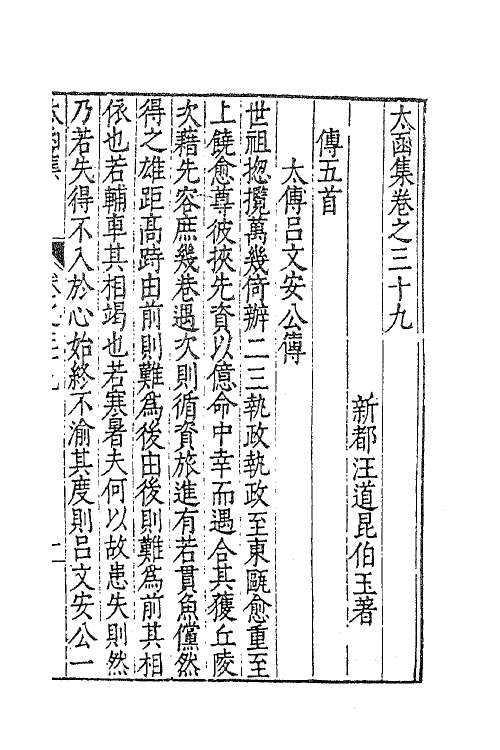 太函集卷之三十九
新都汪道昆伯玉著
傳五首
太傅呂文安公傳
世祖揔攬萬幾倚辦二三執政執政至東甌愈重至
上饒愈尊彼挾先資以億命中幸而遇合其獲丘陵
次藉先容庶幾巷遇次則循資旅進有若貫魚儻然
得之雄距高跱由前則難爲後由後則難爲前其相
依也若輔車其相竭也若寒暑夫何以故患失則然
乃若失得不入於心始終不渝其度則呂文安公一